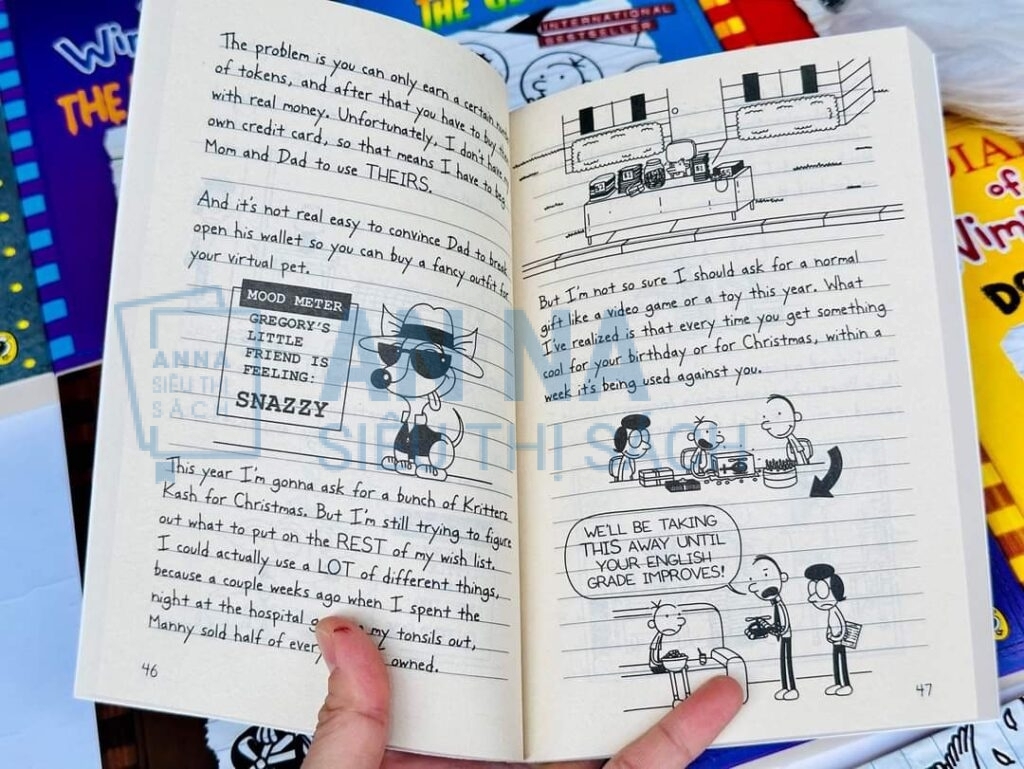 The problem is you can only earn a certain
of tokens, and after that you have to buy
with real money. Unfortunately, I don't have my
own credit card, so that means I have to beg
Mom and Dad to use THEIRS.
And it's not real easy to convince Dad to break
open his wallet so you can buy a fancy outfit for
your virtual pet.
MOOD METER
GREGORY'S
LITTLE
FRIEND IS
FEELING:
SNAZZY
This year I'm gonna ask for a bunch of Kritterz
Kash for Christmas. But I'm still trying to figure
out what to put on the REST of my wish list.
I could actually use a LOT of different things,
because a couple weeks ago when I spent the
night at the hospital my tonsils out,
Manny sold half of owned.
46
But I'm not so sure I should ask for a normal
gift like a video game or a toy this year. What
I've realized is that every time you get something
cool for your birthday or for Christmas, within a
week it's being used against you.
WE'LL BE TAKING
THIS AWAY UNTIL
YOUR ENGLISH
GRADE IMPROVES!
47
INTERNATIONAL
BESTSELLER
THE
THE
of a
ANNA
SIÊU THỊ
SÁCH
AN NA
SIÊU THỊ SÁCH